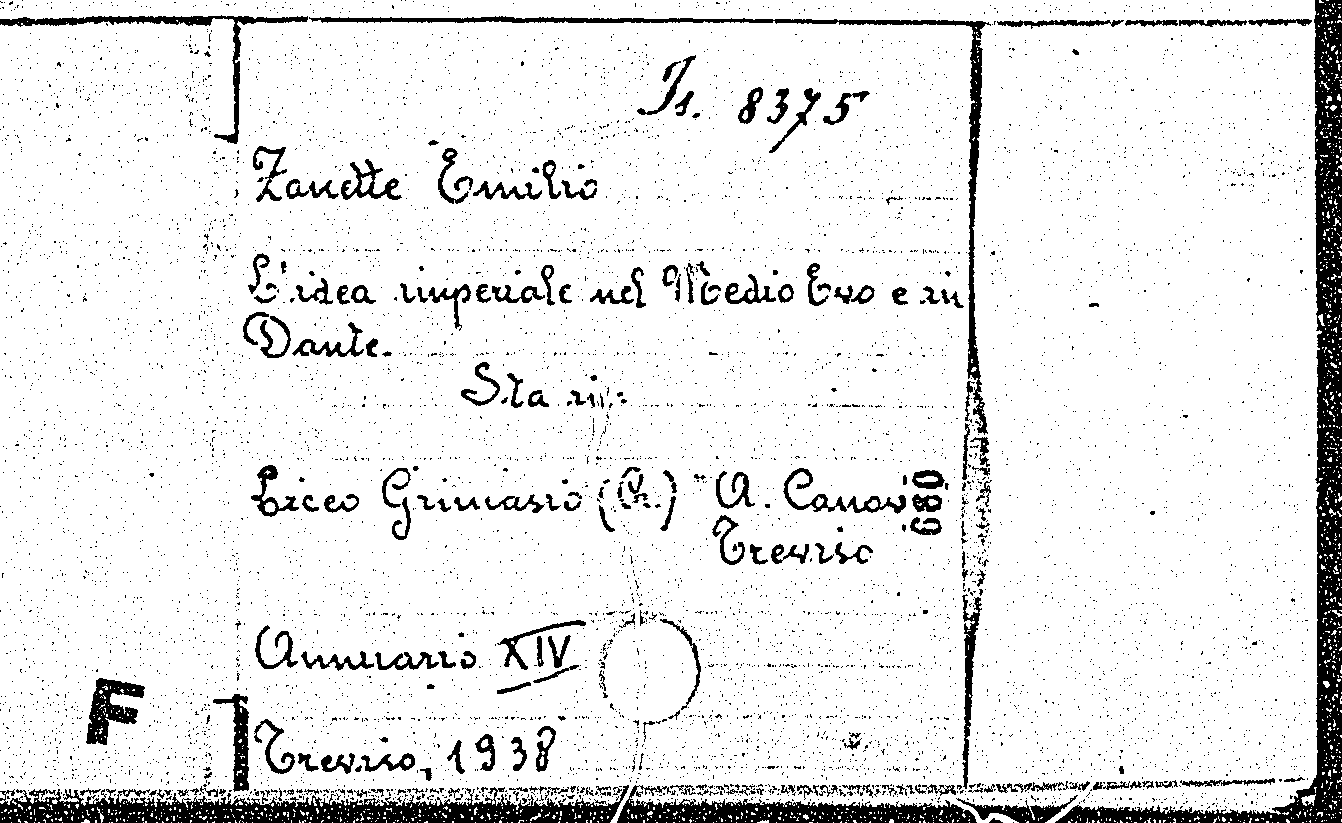 Is. 8375
Zanette Emilio
L'idea imperiale nel Medio Evo e in
Dante.
Sta in:
Liceo Ginnasio (Ch.) A. Canova
Treviso
680
Annuario XIV
F
Treviso, 1938